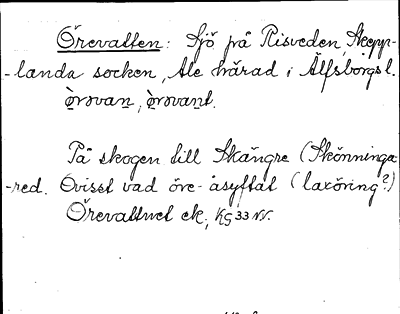 Örevatten: Sjö på Risveden, Skepp-
-landa socken, Ale härad i Älfsborgs l.
òrovan, òrovant.
På skogen till Skängre (Skönninga
-red. Ovisst vad öre- åsyftat (laxöring?)
Örevattnet ek, KG 33 NV.